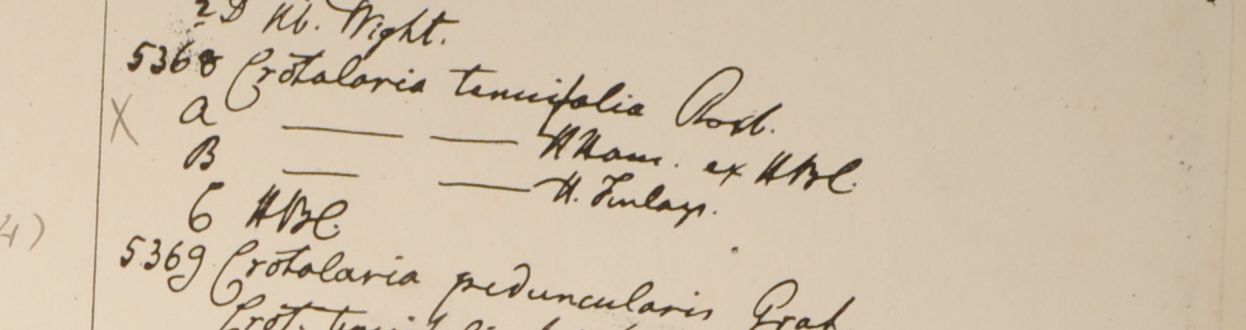 2 D Hb. Wight.
5368 Crotalaria tenuifolia Roxb.
X a — — HHam. ex HBC.
B — — H. Finlays.
C HBC.
4)
5369 Crotalaria peduncularis Grah
Crot.